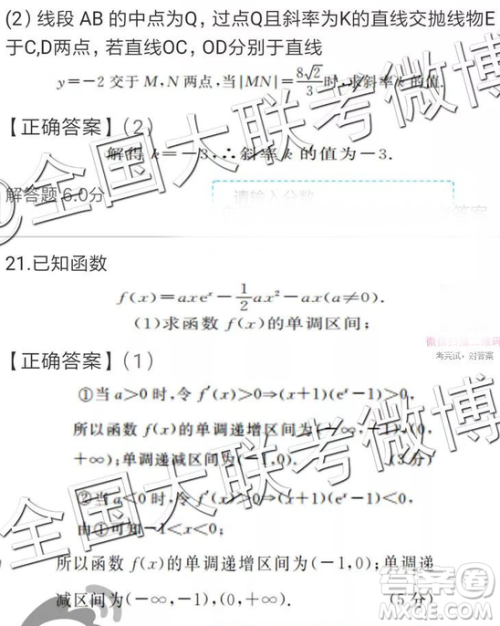 (2) 线段 AB 的中点为Q，过点Q且斜率为K的直线交抛线物E
于C,D两点，若直线OC，OD分别于直线
y=－2 交于 M，N 两点，当|MN|=8√2/3时，求斜率 k 的值.
【正确答案】(2)
解得 k=－3，∴斜率 k 的值为－3.
解答题 6.0分
请输入分数
答案
21.已知函数
f(x)=axeˣ－1/2ax²－ax(a≠0).
(1)求函数 f(x)的单调区间；
微信扫描二维码
考完试，对答案
【正确答案】(1)
①当 a>0 时，令 f′(x)>0⇒(x+1)(eˣ－1)>0，
所以函数 f(x)的单调递增区间为(－∞，－1)，(0，
+∞)；单调递减区间为(－1,0). (3分)
②当 a<0 时，令 f′(x)>0⇒(x+1)(eˣ－1)<0，
由①可知－1<x<0；
所以函数 f(x)的单调递增区间为(－1,0)；单调递
减区间为(－∞，－1)，(0，+∞). (5分)
全国大联考微博
全国大联考微博
答案圈